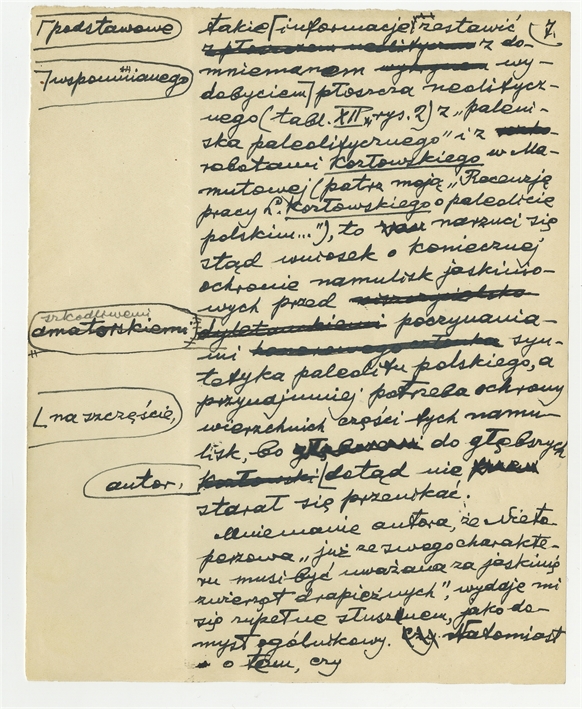 podstawowe
wspomnianego
szkodliwemi
amatorskiemi
na szczęście,
autor,
7.
takie informacje zestawić
z płoszczem neolitycznem z do-
mniemanem wy-
dobyciem płoszcza neolitycz-
nego (tabl. XII, rys. 2) z "paleni-
ska paleolitycznego" i z
robotami Kozłowskiego w Ma-
mutowej (patrz moją "Recenzję
pracy L. Kozłowskiego o paleolicie
polskim..."), to narzuci się
stąd wniosek o koniecznej
ochronie namulisk jaskinio-
wych przed
dyletanckiemi poczynania-
mi syn-
tetyka paleolitu polskiego, a
przynajmniej potrzeba ochrony
wierzchnich części tych namu-
lisk, bo do głębszych
Kozłowski dotąd nie
starał się przenikać.
Mniemanie autora, że Nieto-
perzowa "już ze swego charakte-
ru musi być uważana za jaskinię
zwierząt drapieżnych", wydaje mi
się zupełnie słusznem, jako do-
mysł ogólnikowy. Natomiast
o tem, czy